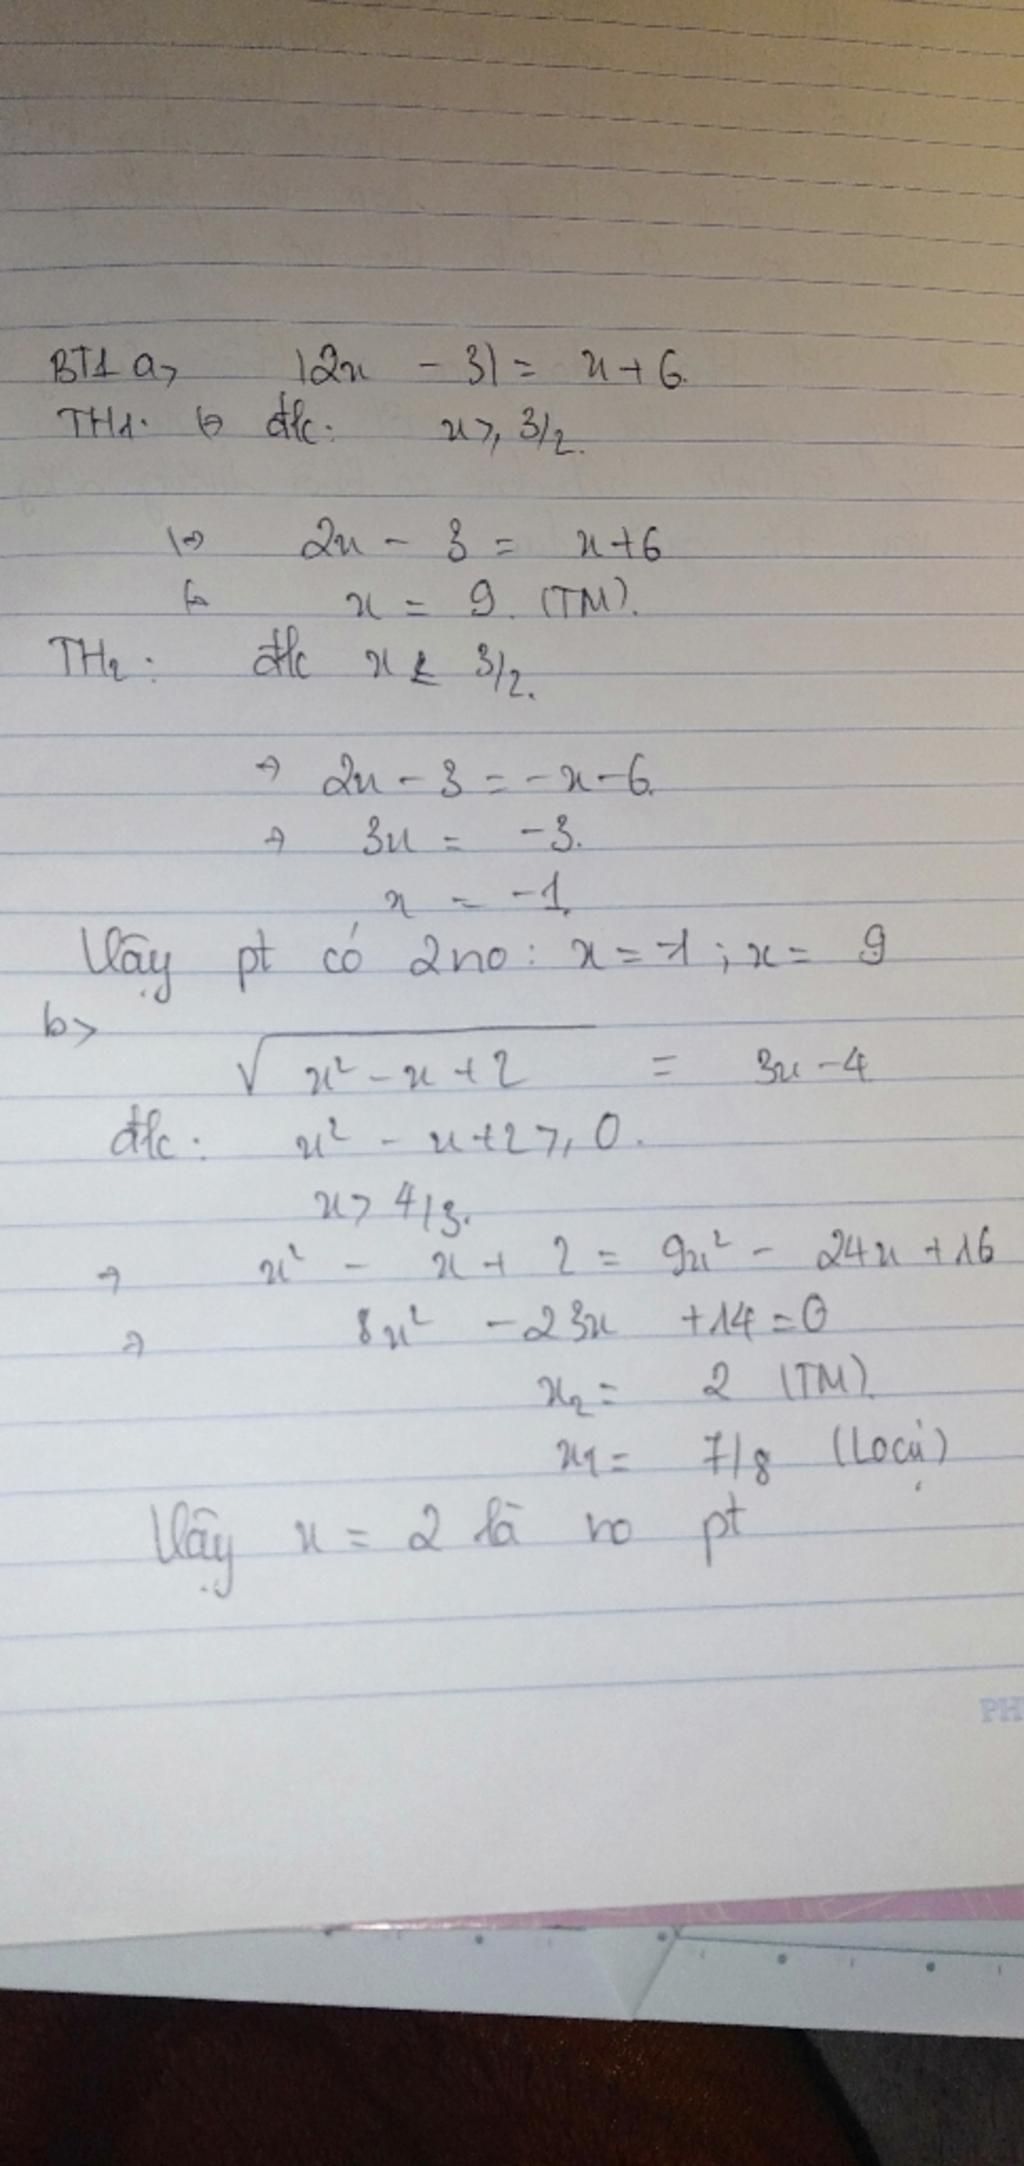 BT1 a> |2x - 3| = x + 6.
TH1: <=> đk: x ≥ 3/2.
<=> 2x - 3 = x + 6
<=> x = 9. (TM).
TH2: đk x < 3/2.
=> 2x - 3 = -x - 6.
=> 3x = -3.
x = -1.
Vậy pt có 2 no: x = -1 ; x = 9
b>
√(x² - x + 2) = 3x - 4
đk: x² - x + 2 ≥ 0.
x > 4/3.
=> x² - x + 2 = 9x² - 24x + 16
=> 8x² - 23x + 14 = 0
x₂ = 2 (TM).
x₁ = 7/8 (Loại)
Vậy x = 2 là no pt
PH